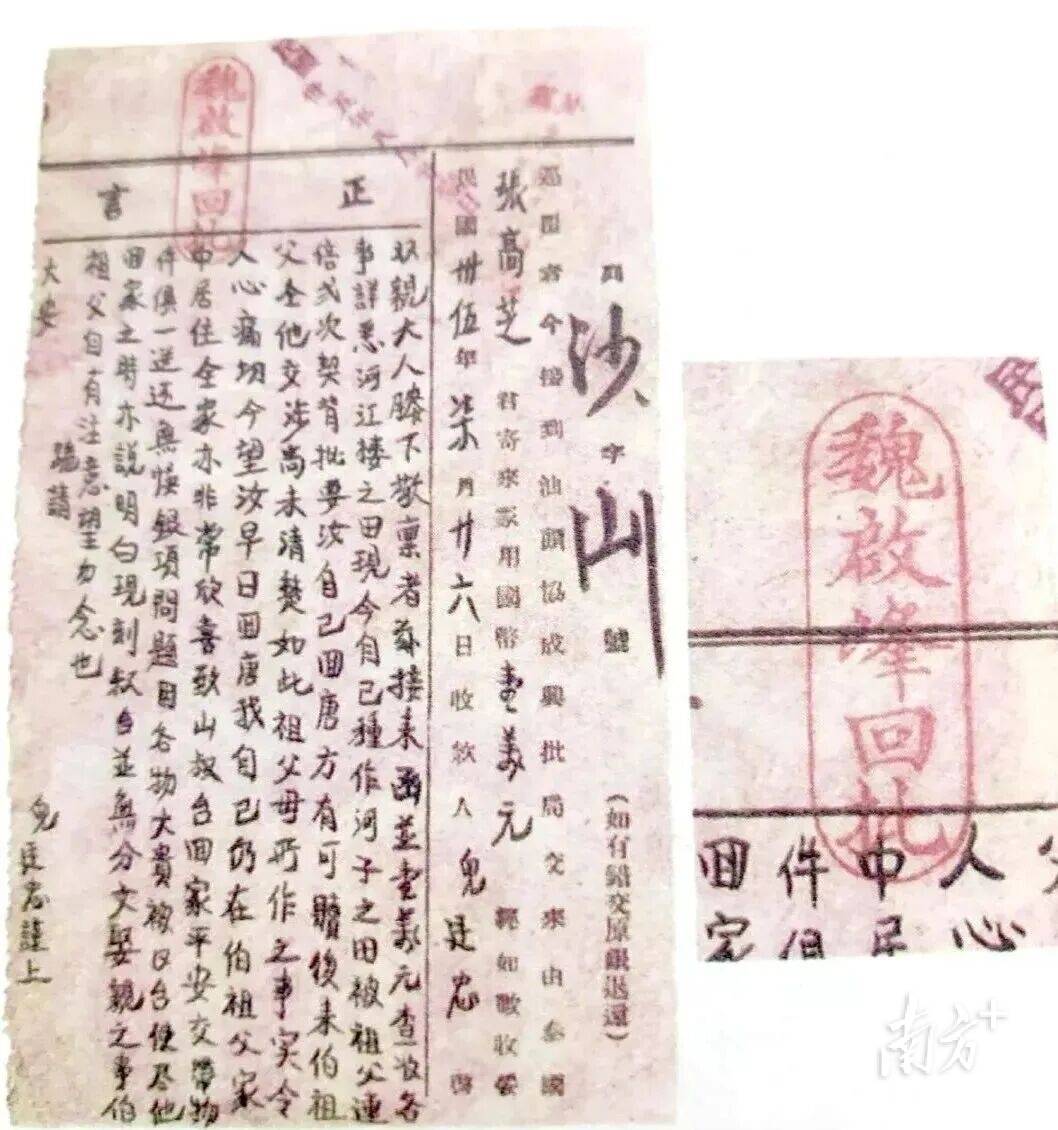 魏啟峰回批
買沙字山號
(如有錯交原銀退還)
逕覆者今接到汕頭協成興批局交來由泰國
張高芝君寄來家用國幣壹美元經如數收妥
民國卅伍年柒月廿六日收款人兒廷忠啓
正言
双親大人膝下敬禀者茲接來函並壹美元查收各
事詳悉河江樓之田現今自己種作河子之田被祖父連
倍弍次契背批要汝自己回唐方有可贖後来伯祖
父全他交涉尚未清楚如此祖父母所作之事实令
人心痛切今望汝早日回唐我自己仍在伯祖父家
中居住全家亦非常欣喜歐山叔台回家平安交帶物
件俱一送还無悞銀項問題目各物大貴被叔台使尽他
回家之時亦說明白現刻叔台並無分文契親之事伯
祖父自有注意望勿念也
端請
大安
兒廷忠謹上
魏啟峰回批
回件中人父
家俱居心
南方+